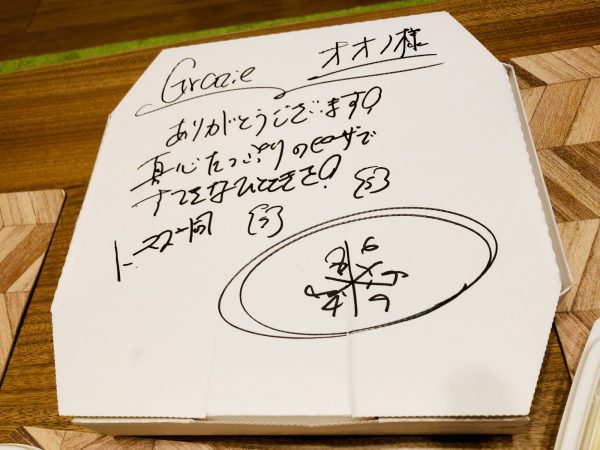 Grazie オオノ様
ありがとうございます!
真心たっぷりのピザで
すてきなひとときを!
一同